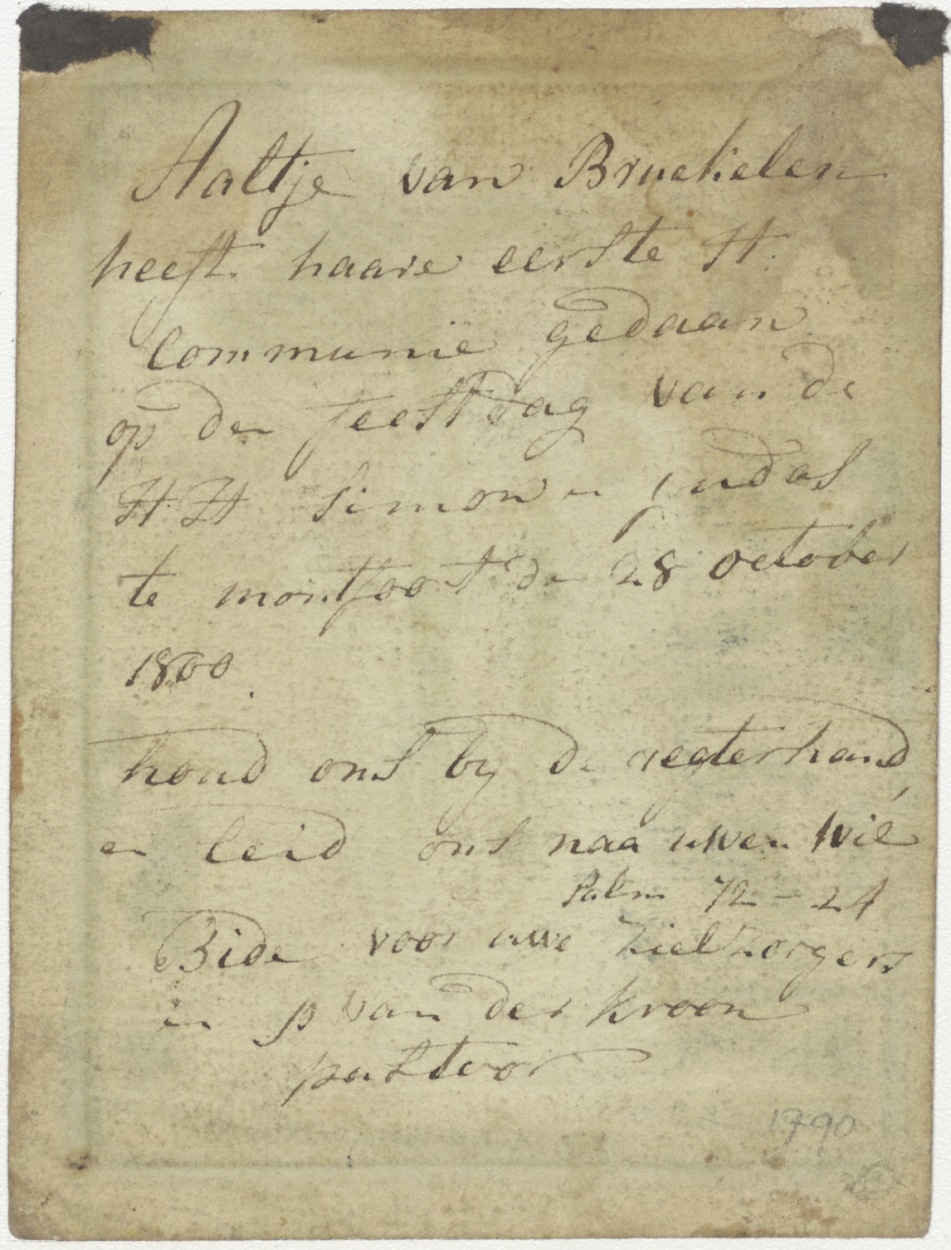 Aaltje van Bruekelen
heeft haare eerste H.
Communie gedaan
op den feestdag van de
H.H Simon en judas
te montfoort den 28 october
1800.
houd ons by de regterhand,
en leid ons naa uwen wil
Psalm 72 - 24
Bide voor uwe Zielzorgers
en p van der kroon
pastoor
1790